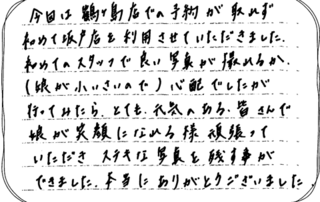 今回は鶴ヶ島店での予約が取れず
初めて坂戸店を利用させていただきました。
初めてのスタッフで良い写真が撮れるか、
(娘が小さいので)心配でしたが
行ってみたら、とても、元気のある、皆さんで
娘が笑顔になれる様頑張って
いただきステキな写真を残す事が
できました。本当にありがとうございました。